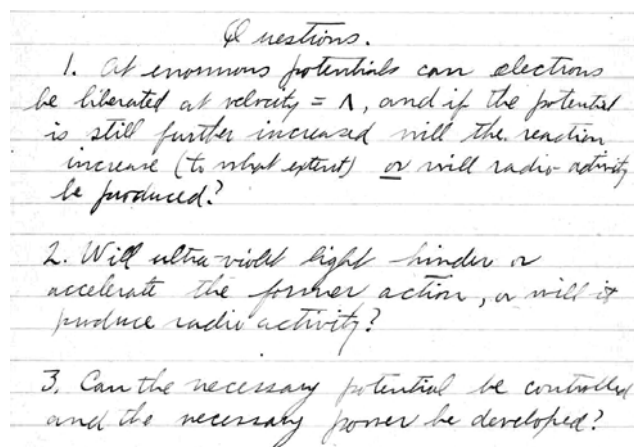 Questions.
1. At enormous potentials can electrons
be liberated at velocity = Λ, and if the potential
is still further increased will the reaction
increase (to what extent) or will radio-activity
be produced?
2. Will ultra-violet light hinder or
accelerate the former action, or will it
produce radio activity?
3. Can the necessary potential be controlled
and the necessary power be developed?